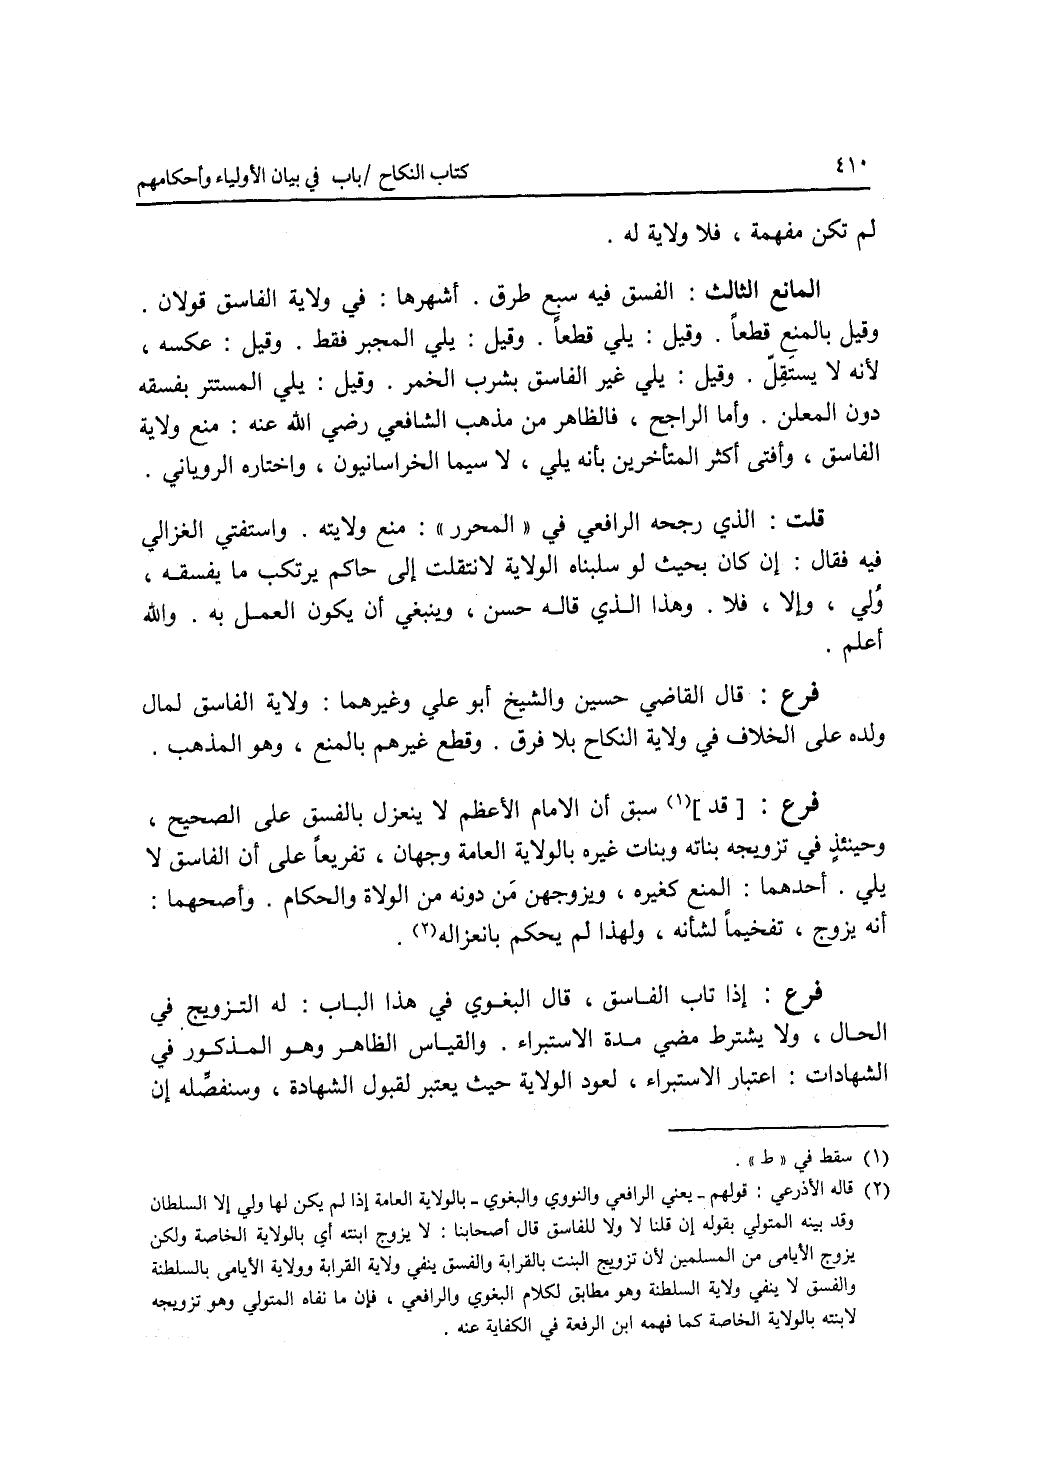 ٤١٠
كتاب النكاح / باب في بيان الأولياء وأحكامهم
لم تكن مفهمة ، فلا ولاية له .
المانع الثالث : الفسق فيه سبع طرق . أشهرها : في ولاية الفاسق قولان .
وقيل بالمنع قطعاً . وقيل : يلي قطعاً . وقيل : يلي المجبر فقط . وقيل : عكسه ،
لأنه لا يستَقِلّ . وقيل : يلي غير الفاسق بشرب الخمر . وقيل : يلي المستتر بفسقه
دون المعلن . وأما الراجح ، فالظاهر من مذهب الشافعي رضي الله عنه : منع ولاية
الفاسق ، وأفتى أكثر المتأخرين بأنه يلي ، لا سيما الخراسانيون ، واختاره الروياني .
قلت : الذي رجحه الرافعي في « المحرر » : منع ولايته . واستفتي الغزالي
فيه فقال : إن كان بحيث لو سلبناه الولاية لانتقلت إلى حاكم يرتكب ما يفسقه ،
وُلي ، وإلا ، فلا . وهذا الذي قاله حسن ، وينبغي أن يكون العمل به . والله
أعلم .
فرع : قال القاضي حسين والشيخ أبو علي وغيرهما : ولاية الفاسق لمال
ولده على الخلاف في ولاية النكاح بلا فرق . وقطع غيرهم بالمنع ، وهو المذهب .
فرع : [ قد ](١) سبق أن الامام الأعظم لا ينعزل بالفسق على الصحيح ،
وحينئذٍ في تزويجه بناته وبنات غيره بالولاية العامة وجهان ، تفريعاً على أن الفاسق لا
يلي . أحدهما : المنع كغيره ، ويزوجهن مَن دونه من الولاة والحكام . وأصحهما :
أنه يزوج ، تفخيماً لشأنه ، ولهذا لم يحكم بانعزاله(٢) .
فرع : إذا تاب الفاسق ، قال البغوي في هذا الباب : له التزويج في
الحال ، ولا يشترط مضي مدة الاستبراء . والقياس الظاهر وهو المذكور في
الشهادات : اعتبار الاستبراء ، لعود الولاية حيث يعتبر لقبول الشهادة ، وسنفصِّله إن
(١) سقط في « ط » .
(٢) قاله الأذرعي : قولهم ـ يعني الرافعي والنووي والبغوي ـ بالولاية العامة إذا لم يكن لها ولي إلا السلطان
وقد بينه المتولي بقوله إن قلنا لا ولا للفاسق قال أصحابنا : لا يزوج ابنته أي بالولاية الخاصة ولكن
يزوج الأيامى من المسلمين لأن تزويج البنت بالقرابة والفسق ينفي ولاية القرابة وولاية الأيامى بالسلطنة
والفسق لا ينفي ولاية السلطنة وهو مطابق لكلام البغوي والرافعي ، فإن ما نفاه المتولي وهو تزويجه
لابنته بالولاية الخاصة كما فهمه ابن الرفعة في الكفاية عنه .